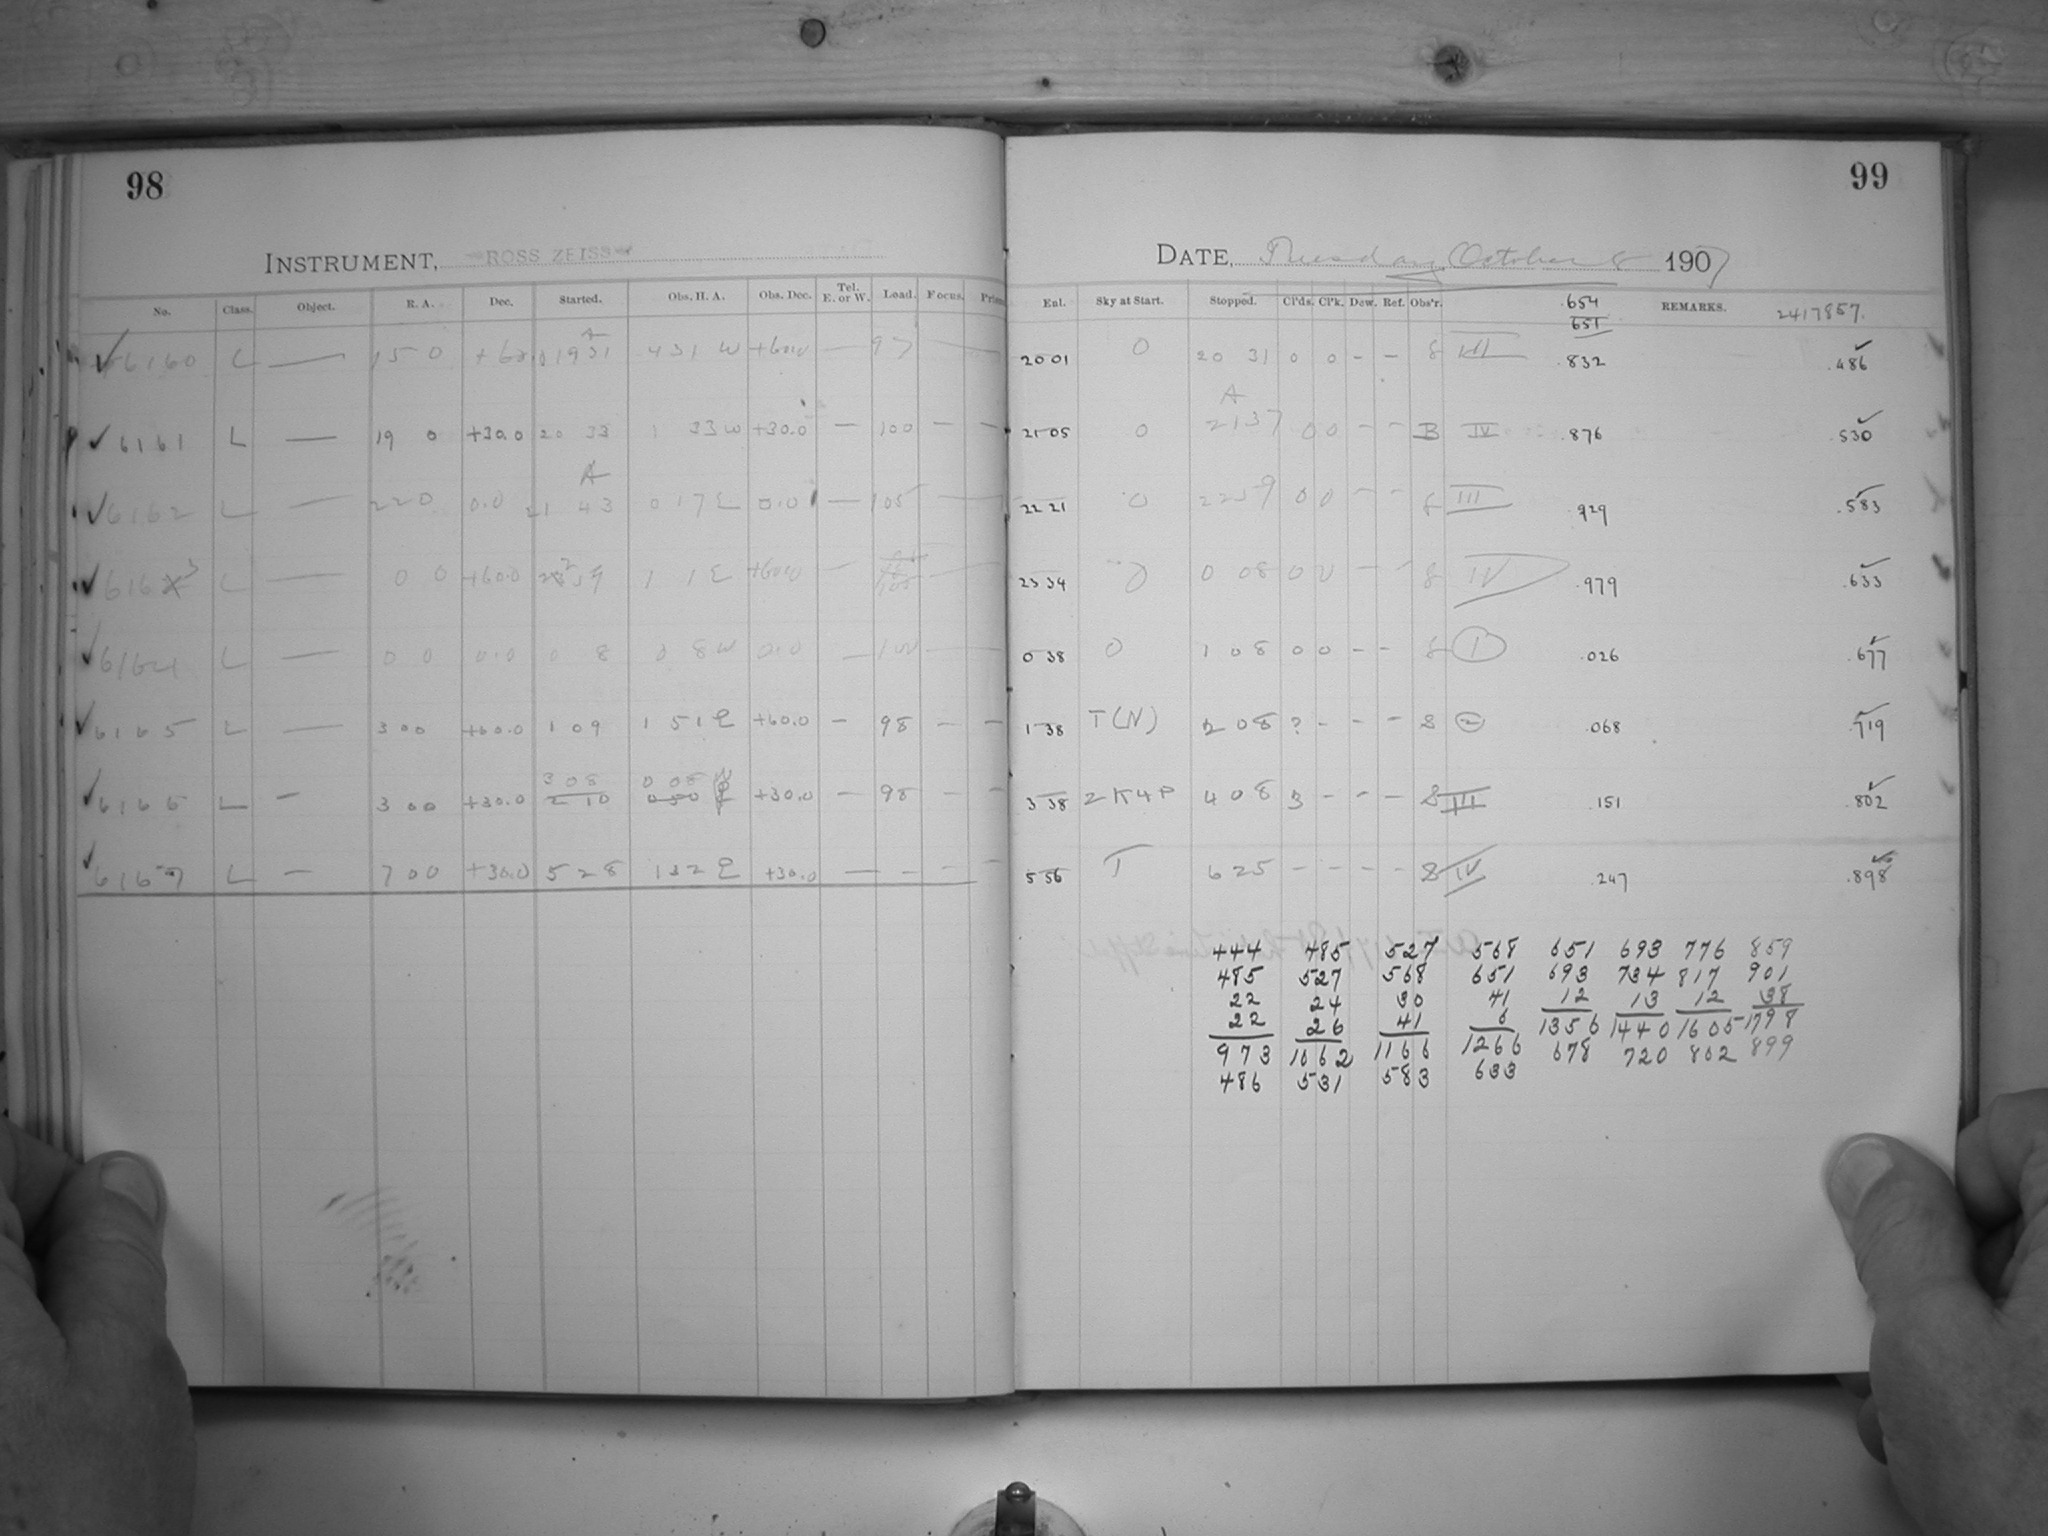 98
INSTRUMENT, ROSS ZEISS
No. Class. Object. R. A. Dec. Started. Obs. H. A. Obs. Dec. Tel. E. or W. Load. Focus.
✓ 6160 L — 15 0 +60.0 1931 4 31 W +60.0 — 97 —
✓ 6161 L — 19 0 +30.0 20 33 1 33 W +30.0 — 100 — —
✓ 6162 L — 22 0 0.0 21 43 0 17 E 0.0 — 105 —
✓ 616 3 L — 0 0 +60.0 1 1 E +60.0 — —
✓ 6164 L — 0 0 0.0 0 8 0 8 W 0.0 — 100 —
✓ 6165 L — 3 00 +60.0 1 09 1 51 E +60.0 — 98 — —
308 0 08 W
✓ 6166 L — 3 00 +30.0 2 10 0 50 E +30.0 — 98 — —
✓ 6167 L — 7 00 +30.0 5 28 1 32 E +30.0 — — — —
99
DATE, Tuesday October 8 1907
Enl. Sky at Start. Stopped. Cl'ds. Cl'k. Dew. Ref. Obs'r. .654 REMARKS. 2417857.
651
20 01 0 20 31 0 0 - - 8 III .832 .486
A
21 05 0 2137 0 0 - - B IV .876 .530
22 21 0 2259 0 0 - - 8 III .929 .583
23 34 0 0 08 0 0 - - 8 IV .979 .633
0 38 0 1 08 0 0 - - 8 I .026 .677
1 38 T(N) 2 08 ? - - - 8 .068 .719
3 38 2K4P 4 08 3 - - - 8 III .151 .802
5 56 T 6 25 - - - - 8 IV .247 .898
444 485 527 568 651 693 776 859
485 527 568 651 693 734 817 901
22 24 30 41 12 13 12 38
22 26 41 6 1356 1440 1605 1798
973 1062 1166 1266 678 720 802 899
486 531 583 633